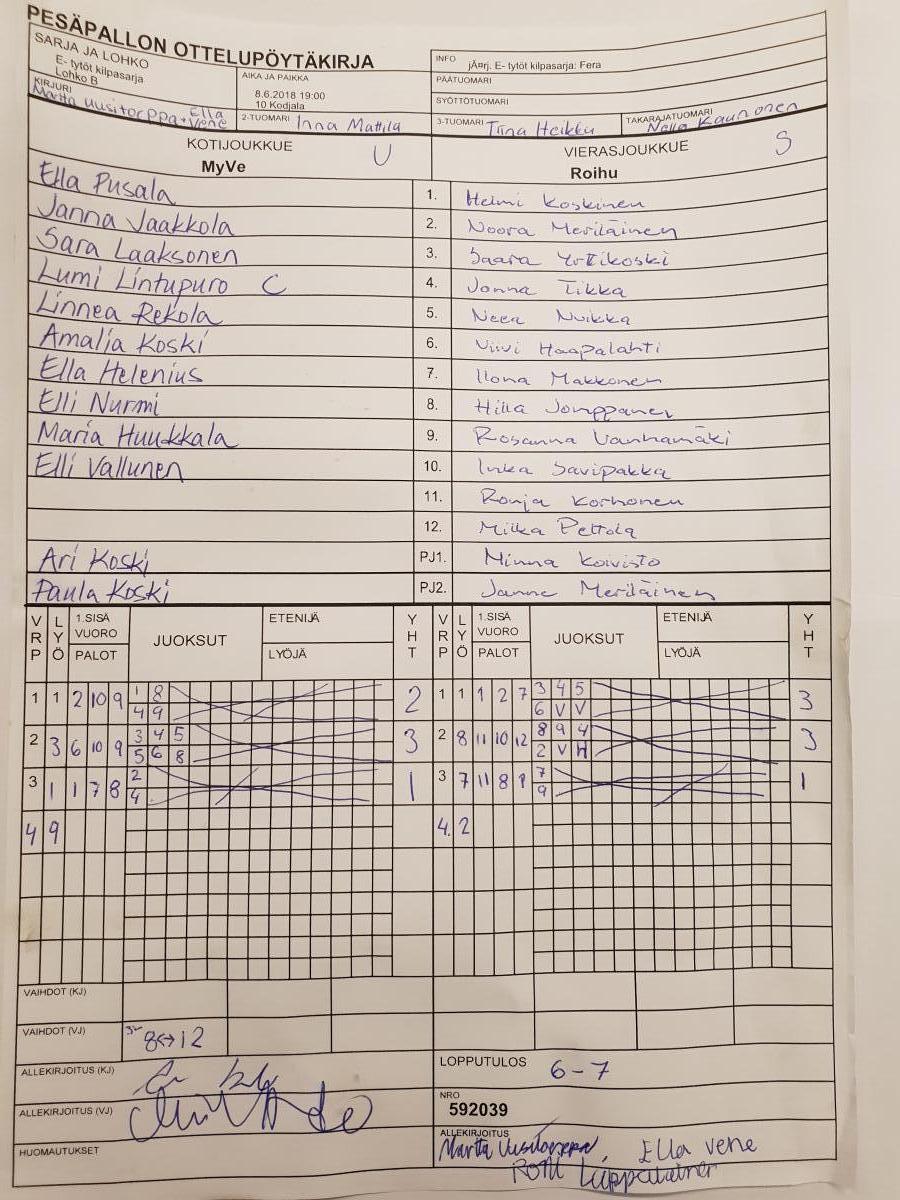 PESÄPALLON OTTELUPÖYTÄKIRJA
SARJA JA LOHKO
E- tytöt kilpasarja
Lohko B
AIKA JA PAIKKA
8.6.2018 19:00
10 Kodjala
INFO jÄ¤rj. E- tytöt kilpasarja: Fera
PÄÄTUOMARI
SYÖTTÖTUOMARI
KIRJURI
Martta Uusitorppa + Ella Vene
2-TUOMARI Inna Mattila
3-TUOMARI Tiina Heikku
TAKARAJATUOMARI Nella Kaunonen
KOTIJOUKKUE U
MyVe
VIERASJOUKKUE S
Roihu
Ella Pusala 1. Helmi Koskinen
Janna Jaakkola 2. Noora Meriläinen
Sara Laaksonen 3. Saara Yrttikoski
Lumi Lintupuro C 4. Jonna Tikka
Linnea Rekola 5. Neea Nuikka
Amalia Koski 6. Viivi Haapalahti
Ella Helenius 7. Ilona Makkonen
Elli Nurmi 8. Hilla Jomppanen
Maria Huukkala 9. Rosanna Vanhamäki
Elli Vallunen 10. Inka Savipakka
11. Ronja Korhonen
12. Milka Peltola
Ari Koski PJ1. Minna Koivisto
Paula Koski PJ2. Janne Meriläinen
VRP LYÖ 1.SISÄ VUORO PALOT JUOKSUT ETENIJÄ LYÖJÄ YHT VRP LYÖ 1.SISÄ VUORO PALOT JUOKSUT ETENIJÄ LYÖJÄ YHT
1 1 2 10 9 1 8 2 1 1 1 2 7 3 4 5 3
4 9 6 V V
2 3 6 10 9 3 4 5 3 2 8 11 10 12 8 9 4 3
5 6 8 2 V H
3 1 1 7 8 2 1 3 7 11 8 9 7 1
4 9
4 9 4. 2
VAIHDOT (KJ)
VAIHDOT (VJ) 8↔12
ALLEKIRJOITUS (KJ)
LOPPUTULOS 6-7
ALLEKIRJOITUS (VJ)
NRO
592039
HUOMAUTUKSET
ALLEKIRJOITUS
Martta Uusitorppa, Ella Vene
Luppalainen